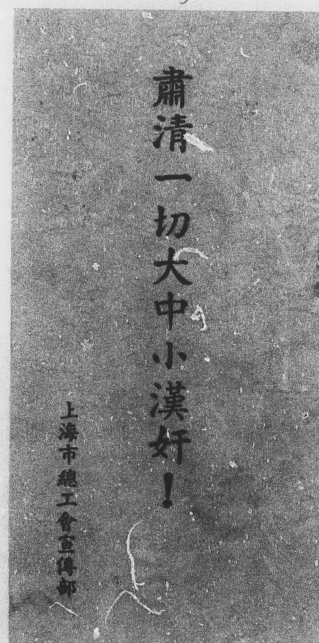 肅清一切大中小漢奸！
上海市總工會宣傳部